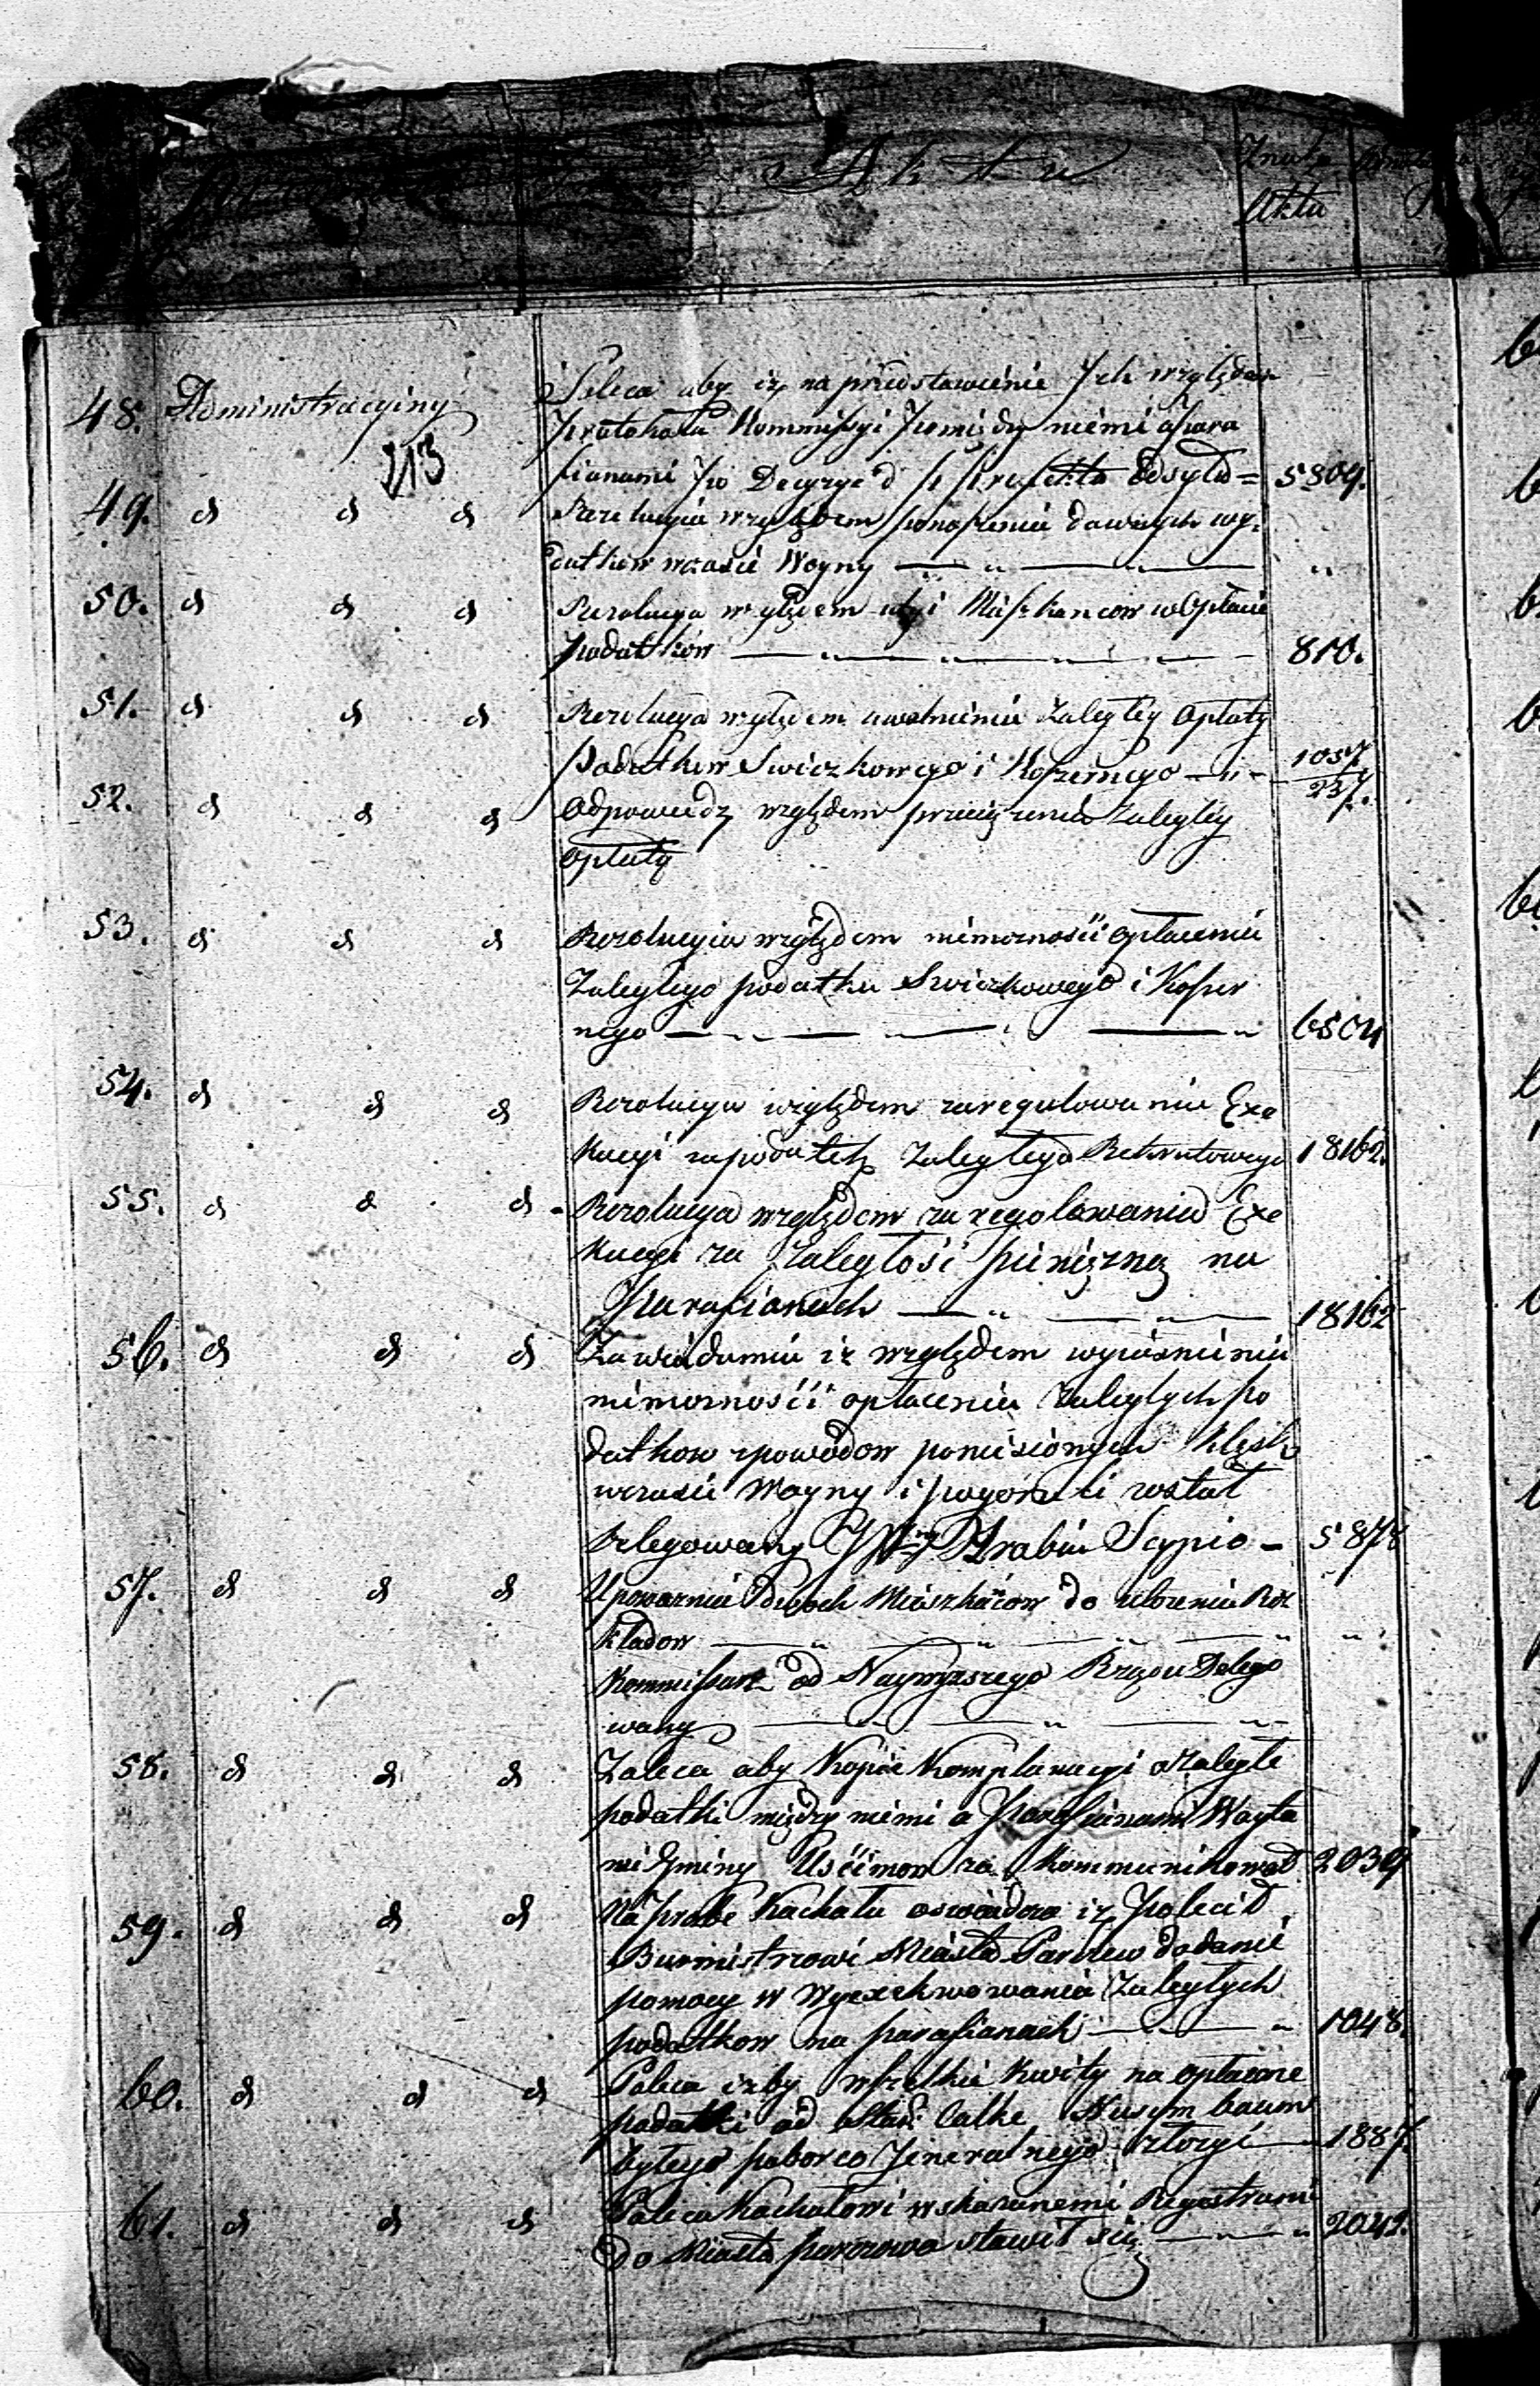 Aktu
Aktu
48. Administracyiny
Poleca aby iż na przedstawienie Ich względem
Protokołu Kommissyi pomiędzy niemi a para
213
fianami Po Decyzyą 5809.
49. d d d Rezolucyia względem ponoszenia dawnych wy=
datków wczasie Woyny — „ — „ — „
50. d d d Rezolucya względem Mieszkancow w Opłacie
podatków — „ — „ — „ — 810.
51. d d d Rezolucya względem uwolnienia Zaległey Opłaty
Podatkow Swieczkowego i Koszernego — „ — 1057
237.
52. d d d Odpowiedz względem zaległey
Opłaty
53. d d d Rezolucyia względem niemożności opłacenia
Zaległego podatku Swieczkowego i Koszer
nego — „ — — „ 6504
54. d d d Rezolucya względem zaregulowania Exe
kucyi za podatek Zaległego Rekrutowego 18162.
55. d d d Rezolucya względem zaregolowania Exe
kucyi za Zaległość pieniężną na
Parafianach — „ — „ — 18162
56. d d d Zawiadamia iż względem wyiaśnienia
niemożności opłacenia Zaległych po
datkow zpowodow poniesionych klęsk
wczasie Woyny i pogorzeli został
Delegowany JW Hrabia Scypio — 5878
57. d d d Upoważnia dwóch Mieszkańcow do ułożenia Roz
kładow — „ — „ — „ — „ „
Kommissarz od Naywyższego Rządu Delego
wany — „ — „ — „
58. d d d Zaleca aby Kopiie Komplanacyi o Zaległe
podatki między niemi a Parafianami Wóyta
mi Gminy Uścimow za Kommunikował 2039
59. d d d Na proźbe Kachału oswiadcza iż Polecił
Burmistrzowi Miasta Parczew dodanie
pomocy w Wyexekwowania Zaległych
podatkow na parafianach — „ 1048.
60. d d d Poleca izby wszelkie Kwity na opłacone
podatki od Nusymbaum
byłego poborco Jeneralnego złozyć — 1887.
61. d d d Poleca Kachałowi wskazanemi Regestrami
do Miasta stawił się — „ — „ 2042.